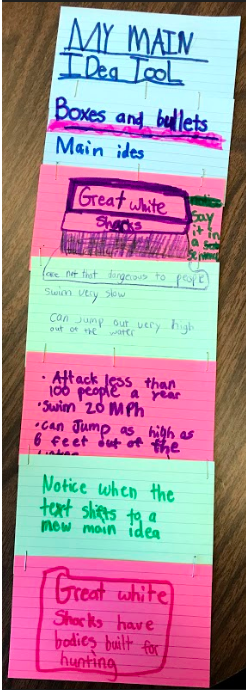 MY MAIN
IDea TooL
Boxes and bullets
Main ides
Great white
Sharks
Say
it in
a
are not that dangerous to people
Swim very slow
can Jump out very high
out of the water
• Attack less than
100 people a year
• Swim 20 MPh
• can Jump as high as
6 feet out of the
Notice when the
text shifts to a
new main idea
Great white
Sharks have
bodies built for
hunting